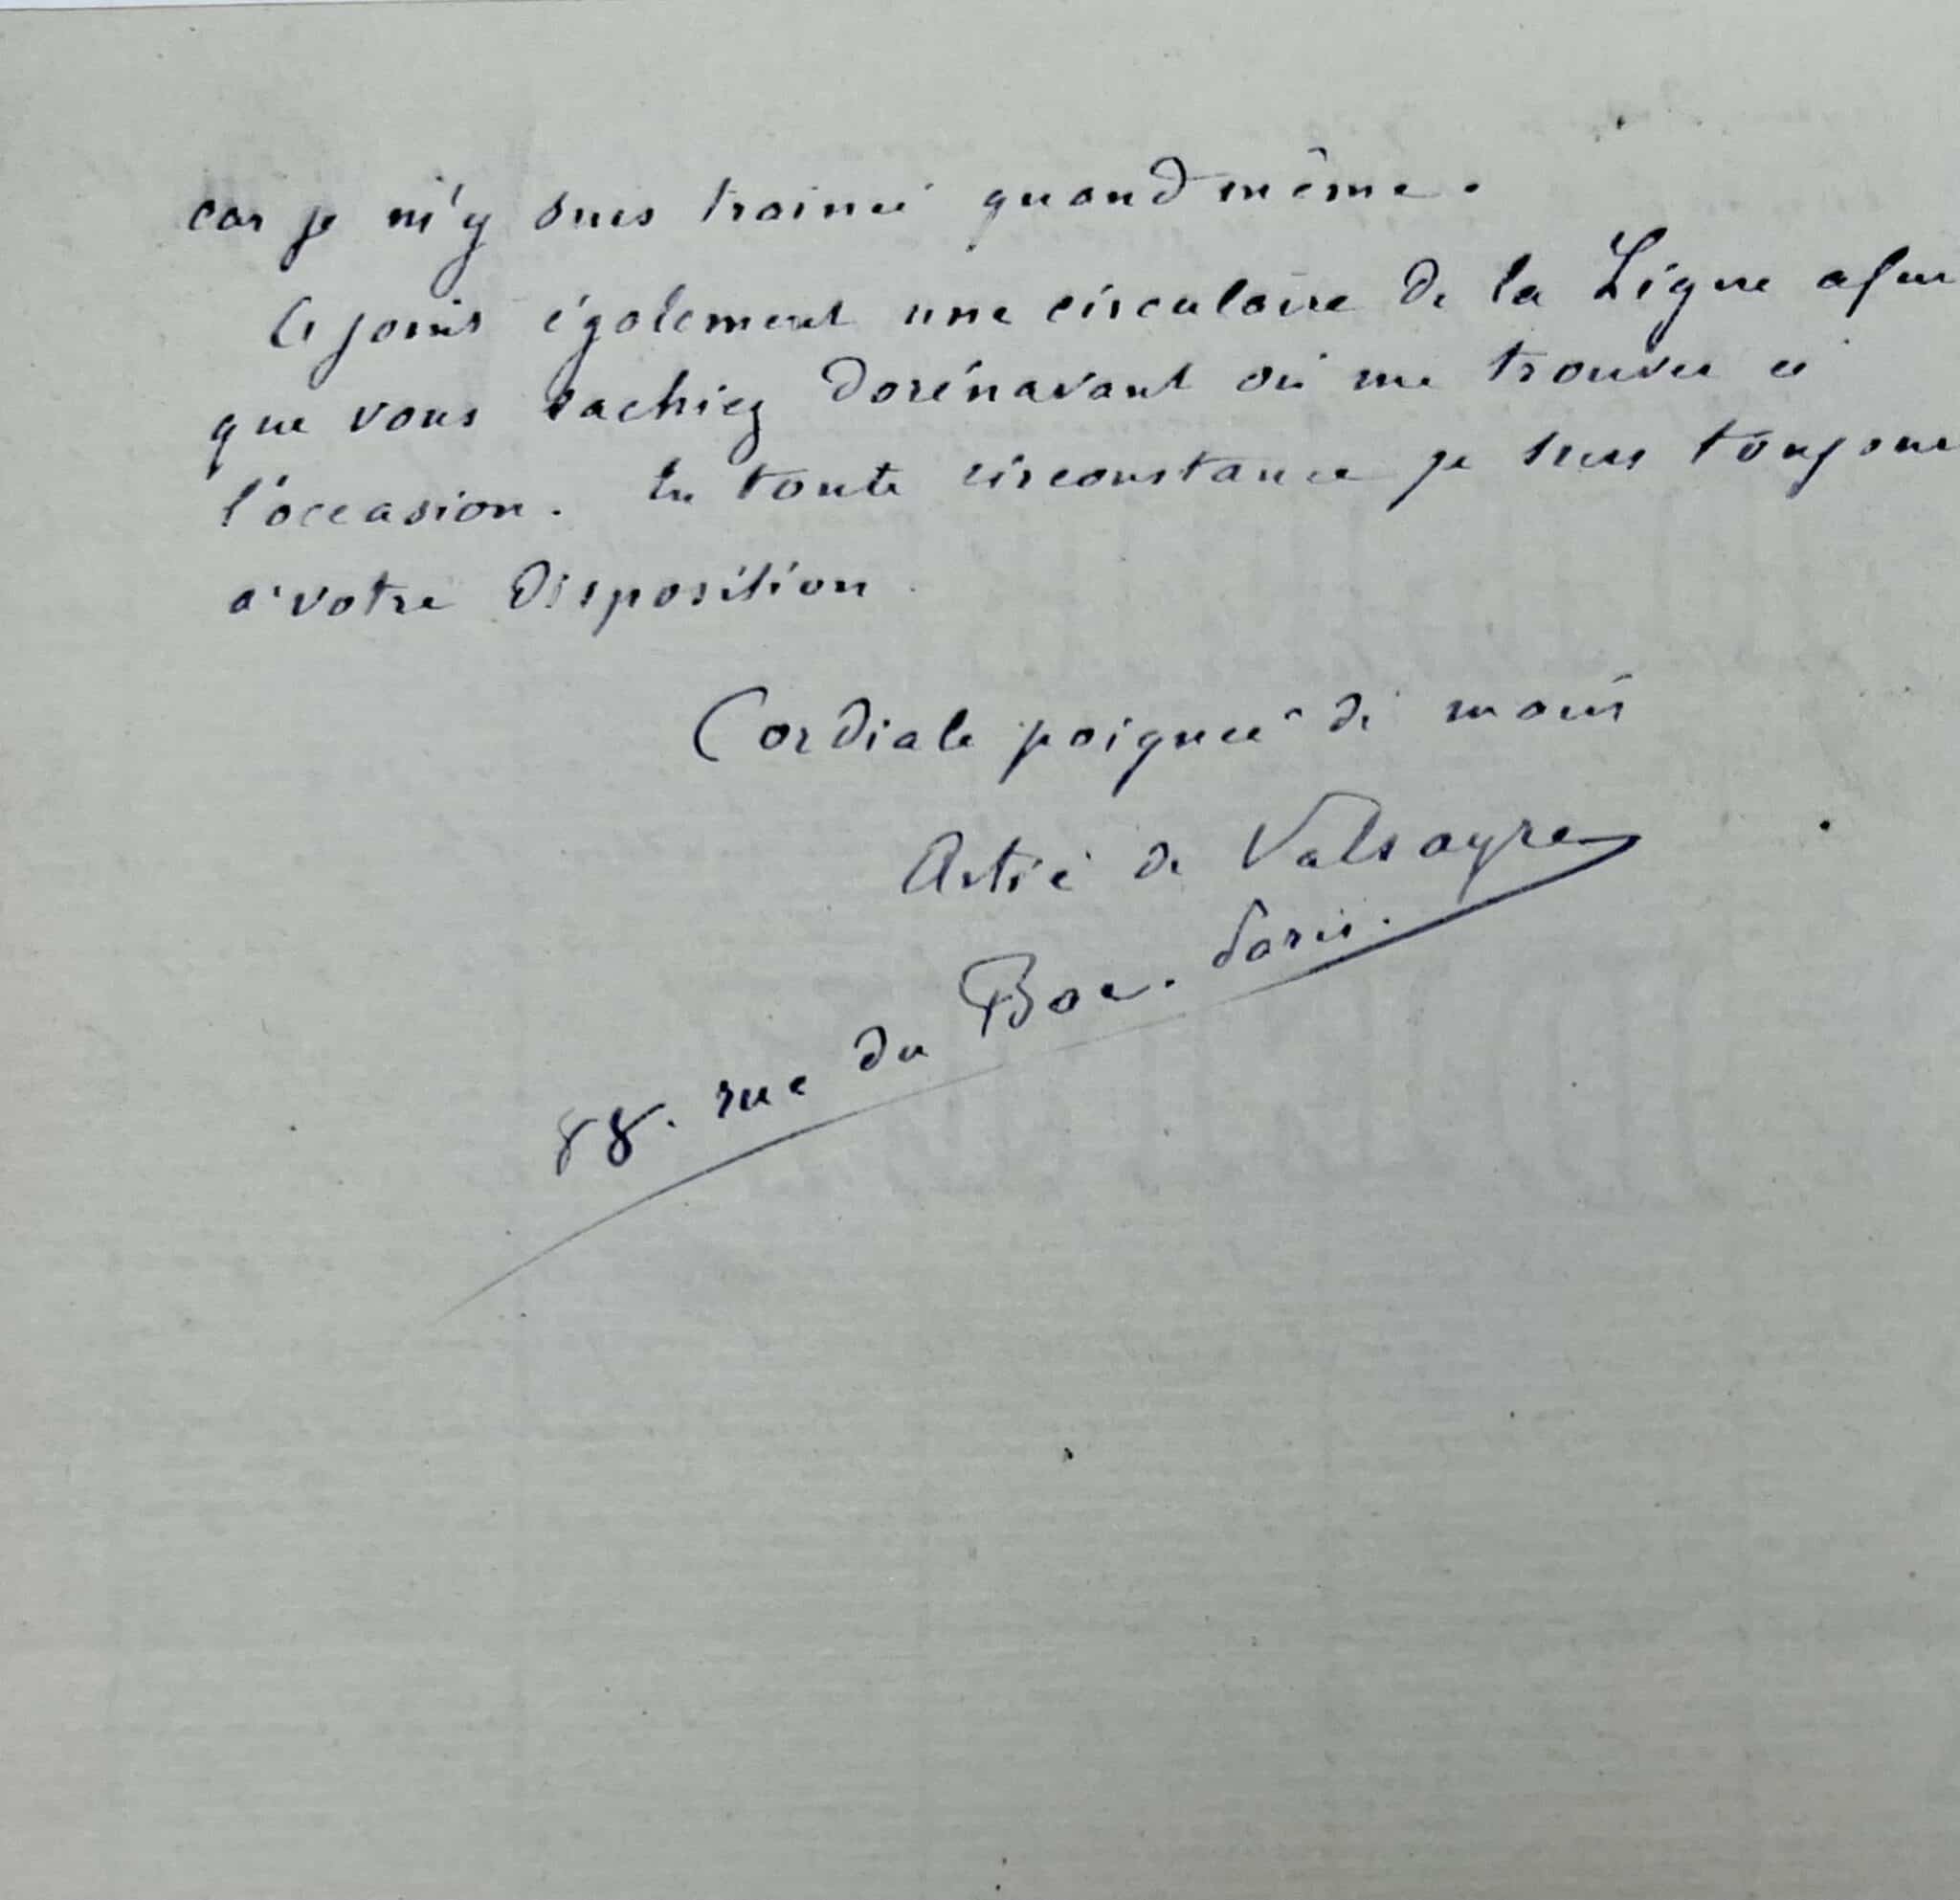 car je m'y suis trainée quand même.
Ci joint également une circulaire de la Ligue afin
que vous sachiez dorénavant où me trouver à
l'occasion. En toute circonstance je suis toujours
à votre disposition.
Cordiale poignée de main
Astié de Valsayre
88. rue du Bac. Paris.